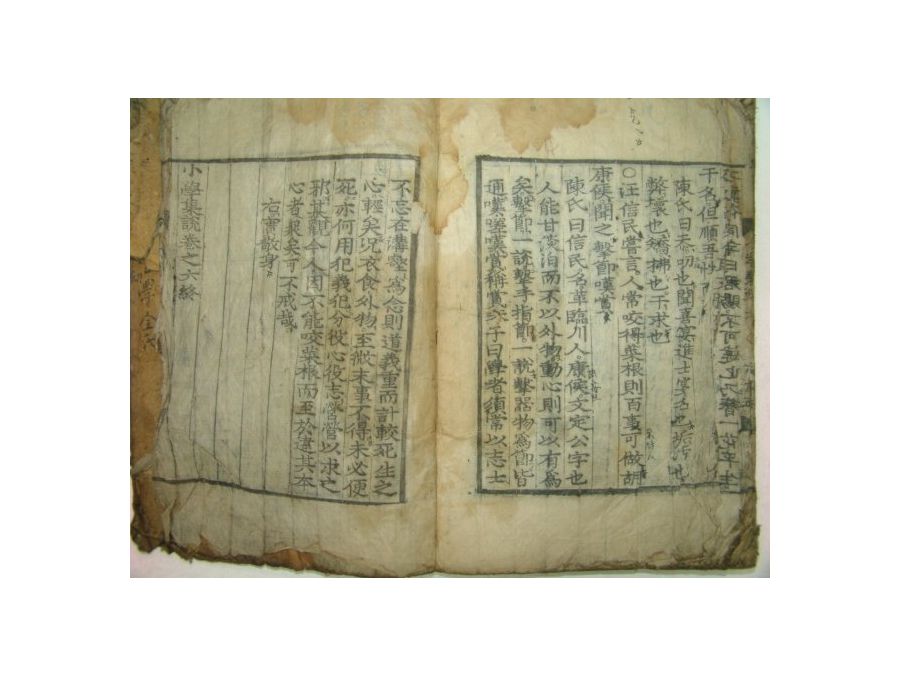 干名但順吾
陳氏曰忝切也聞喜宴進士宴名也
弊壞也矯拂也干求也
○汪信民嘗言人常咬得菜根則百事可做胡
康侯聞之擊節嘆賞
陳氏曰信民名革臨川人康侯文定公字也
人能甘淡泊而不以外物動心則可以有爲
矣擊節一說擊手指節一說擊器物爲節皆
通嘆嗟嘆賞稱賞朱子曰學者須常以志士
不忘在溝壑爲念則道義重而計較死生之
心輕矣況衣食外物至微末事不得未必便
死亦何用犯義犯分役心役志營營以求之
邪某觀今人因不能咬菜根而至於違其本
心者衆矣可不戒哉
右實敬身
小學集說卷之六終